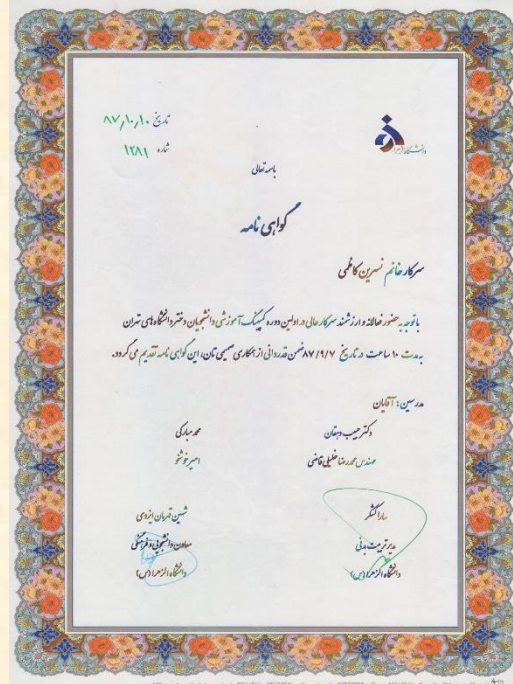 دانشگاه الزهرا
تاریخ ۸۷/۱۰/۱۰
شماره ۱۲۸۱
باسمه تعالی
گواهی نامه
سرکار خانم نسرین کاظمی
باتوجه به حضور فعالانه و ارزشمند سرکار عالی در اولین دوره کمپینگ آموزشی دانشجویان دختر دانشگاه های تهران
به مدت ۱۰ ساعت در تاریخ ۸۷/۹/۷ ضمن قدردانی از همکاری صمیمی تان، این گواهی نامه تقدیم می گردد.
مدرسین: آقایان
دکتر حبیب دهقان
محمد مبارکی
مهندس محمدرضا خلیلی قاضی
امیر خوشخو
سارا لشگر
مدیر تربیت بدنی
دانشگاه الزهرا (س)
شهین قهرمان ایزدی
معاون دانشجویی و فرهنگی
دانشگاه الزهرا (س)